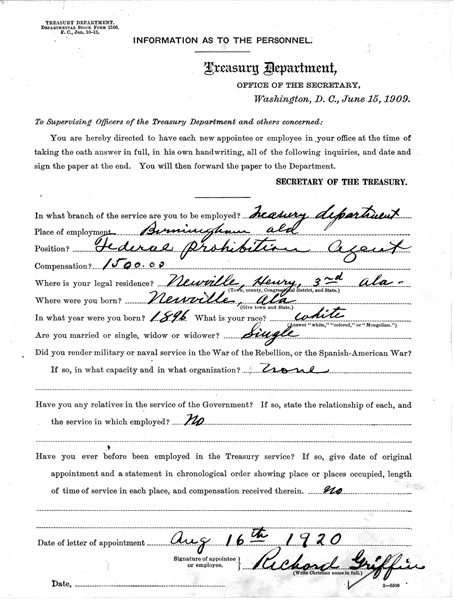 TREASURY DEPARTMENT.
DEPARTMENTAL STOCK FORM 2166.
F. C., Jan. 10-13.
INFORMATION AS TO THE PERSONNEL.
Treasury Department,
OFFICE OF THE SECRETARY,
Washington, D. C., June 15, 1909.
To Supervising Officers of the Treasury Department and others concerned:
You are hereby directed to have each new appointee or employee in your office at the time of
taking the oath answer in full, in his own handwriting, all of the following inquiries, and date and
sign the paper at the end. You will then forward the paper to the Department.
SECRETARY OF THE TREASURY.
In what branch of the service are you to be employed? Treasury department
Place of employment, Birmingham ala
Position? Federal prohibition Agent
Compensation? 1500.00
Where is your legal residence? Newville, Henry, 3rd Ala-
(Town, county, Congressional district, and State.)
Where were you born? Newville, Ala
(Give town and State.)
In what year were you born? 1896 What is your race? white
(Answer "white," "colored," or "Mongolian.")
Are you married or single, widow or widower? Single
Did you render military or naval service in the War of the Rebellion, or the Spanish-American War?
If so, in what capacity and in what organization? None
Have you any relatives in the service of the Government? If so, state the relationship of each, and
the service in which employed? No
Have you ever before been employed in the Treasury service? If so, give date of original
appointment and a statement in chronological order showing place or places occupied, length
of time of service in each place, and compensation received therein. No
Date of letter of appointment Aug 16th 1920
Signature of appointee
or employee. Richard Griffin
(Write Christian name in full.)
Date,
2—5509